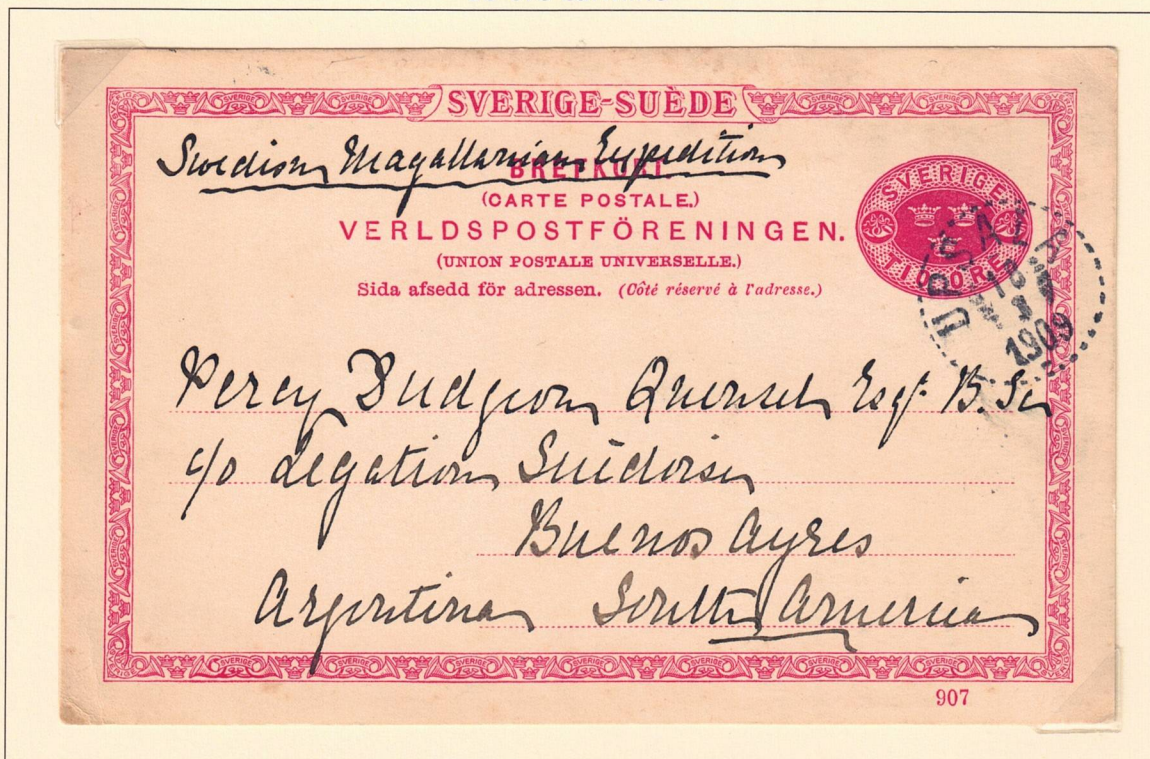 SVERIGE-SUÈDE
Swedish Magallanian Expedition
BREFKORT
(CARTE POSTALE.)
VERLDSPOSTFÖRENINGEN.
(UNION POSTALE UNIVERSELLE.)
Sida afsedd för adressen. (Côté réservé à l'adresse.)
SVERIGE
TIO ÖRE
UPSALA
1909
Percy Dudgeon Quensel Esqr. B. Sc
c/o Legation Suédoise
Buenos Ayres
Argentina South America
907